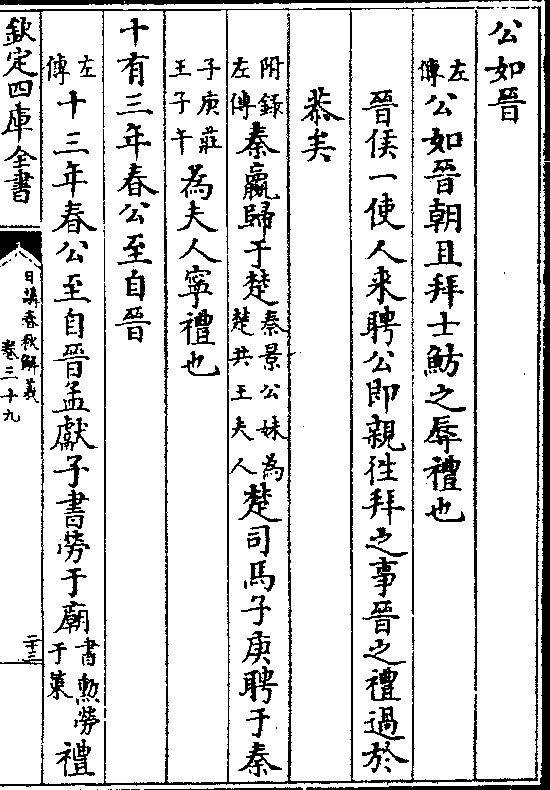 公如晉
左傳公如晉朝且拜士魴之辱禮也
晉侯一使人来聘公即親徃拜之事晉之禮過於
恭矣
附錄左傳秦嬴歸于楚秦景公妹為楚共王夫人楚司馬子庚聘于秦
子庚莊王子午為夫人寧禮也
十有三年春公至自晉
左傳十三年春公至自晉孟獻子書勞于廟書勳勞于策禮
欽定四庫全書
日講春秋解義
卷三十九
二十三